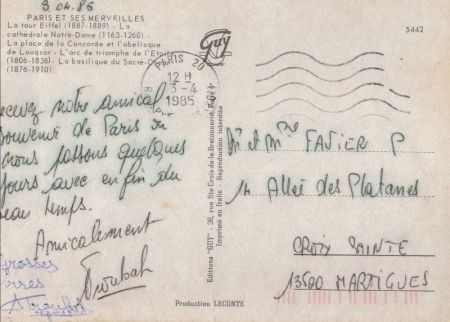 3.04.85
PARIS ET SES MERVEILLES
La tour Eiffel (1887-1889) - La
cathédrale Notre-Dame (1163-1260) -
La place de la Concorde et l'obélisque
de Louqsor - L'arc de triomphe de l'Etoile
(1806-1836) - La basilique du Sacré-Cœur
(1876-1910).
Guy
5442
PARIS 20
12 H
3-4
1985
ecevez notre amical
souvenir de Paris où
nous passons quelques
jours avec enfin du
beau temps.
Amicalement
Grosses
Editions "GUY" - 38, rue Ste-Croix-de-la-Bretonnerie, Paris
Imprimé en Italie - Reproduction interdite
Mr et Mme FAVIER P
14 Allée des Platanes
CROIX SAINTE
13500 MARTIGUES
Production LECONTE